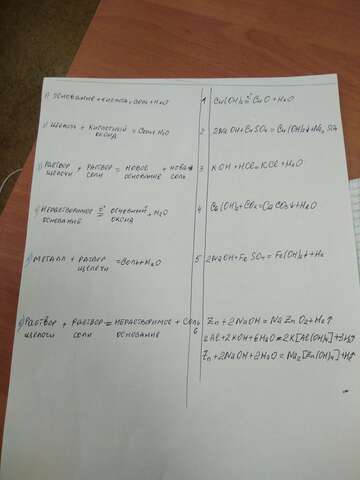 1) ОСНОВАНИЕ + КИСЛОТА = СОЛЬ + H2O
2) ЩЕЛОЧЬ + КИСЛОТНЫЙ ОКСИД = СОЛЬ + H2O
3) РАСТВОР ЩЕЛОЧИ + РАСТВОР СОЛИ = НОВОЕ ОСНОВАНИЕ + НОВАЯ СОЛЬ
4) НЕРАСТВОРИМОЕ ОСНОВАНИЕ t° = ОСНОВНЫЙ ОКСИД + H2O
5) МЕТАЛЛ + РАСТВОР ЩЕЛОЧИ = СОЛЬ + H2O
6) РАСТВОР ЩЕЛОЧИ + РАСТВОР СОЛИ = НЕРАСТВОРИМОЕ ОСНОВАНИЕ + СОЛЬ
1 Cu(OH)2 t°= CuO + H2O
2 2NaOH + CuSO4 = Cu(OH)2↓ + Na2SO4
3 KOH + HCl = KCl + H2O
4 Ca(OH)2 + CO2 = CaCO3↓ + H2O
5 2NaOH + FeSO4 = Fe(OH)2↓ +
6 Zn + 2NaOH = Na2ZnO2 + H2↑
2Al + 2KOH + 6H2O = 2K[Al(OH)4] + 3H2↑
Zn + 2NaOH + 2H2O = Na2[Zn(OH)4] + H2↑